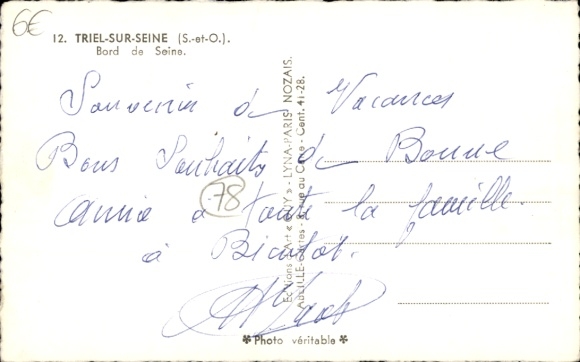 6€
12. TRIEL-SUR-SEINE (S.-et-O.).
Bord de Seine.
Souvenir de Vacances
Bons Souhaits de Bonne
année à toute la famille.
à Bientot.
78
Editions d'Art « GUY » - LYNA-PARIS NOZAIS.
ABEILLE-Cartes - 8, rue du Caire - Cent. 41-28.
✽ Photo véritable ✽